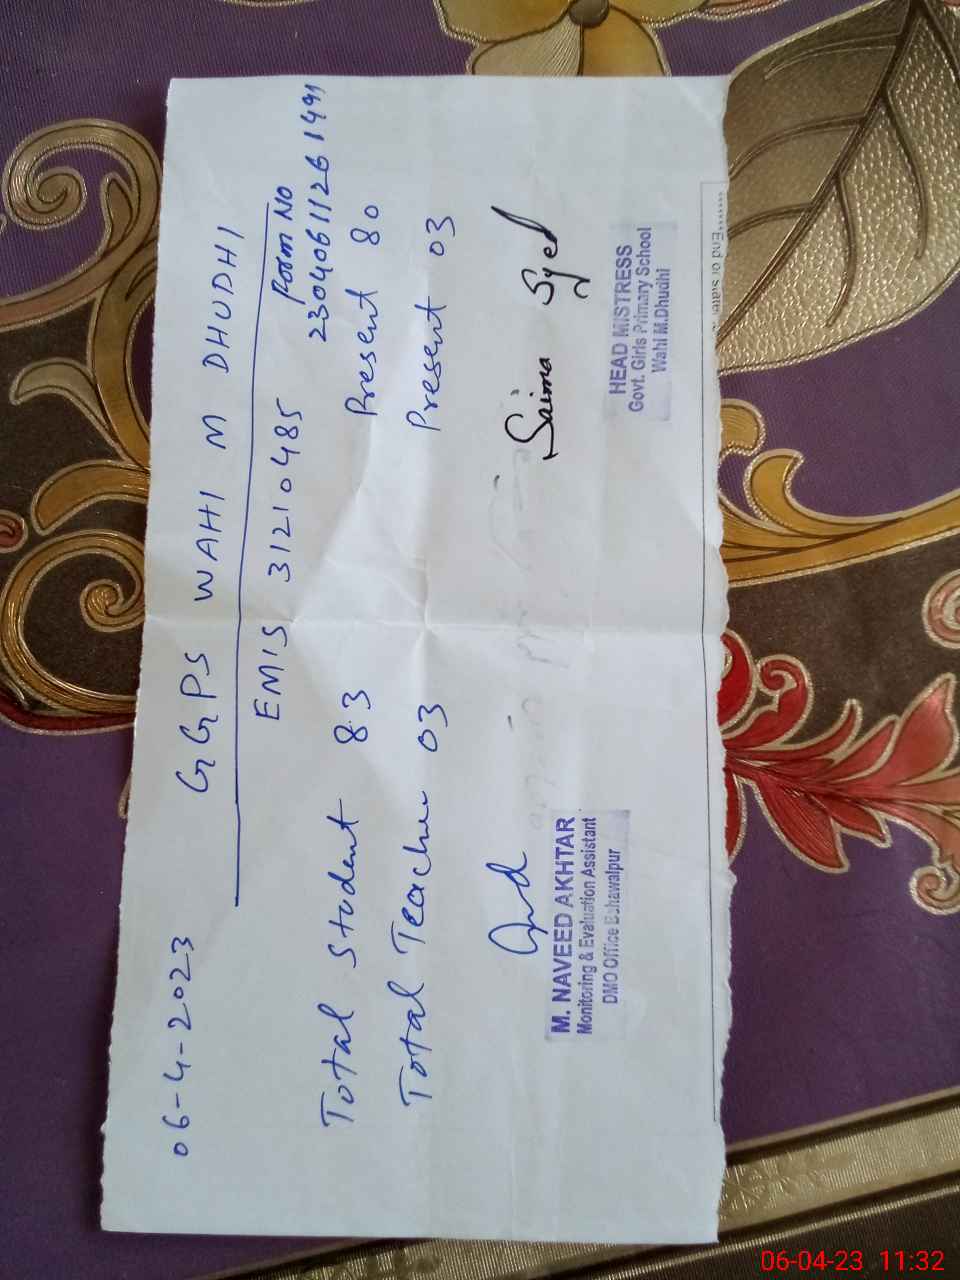 06-4-2023
GGPS WAHI M DHUDHI
EMIS 31210485
Form No
23040611261491
Total Student 83 Present 80
Total Teacher 03 Present 03
Saima Syed
M. NAVEED AKHTAR
Monitoring & Evaluation Assistant
DMO Office Bahawalpur
HEAD MISTRESS
Govt. Girls Primary School
Wahi M.Dhudhi
......End of
06-04-23 11:32